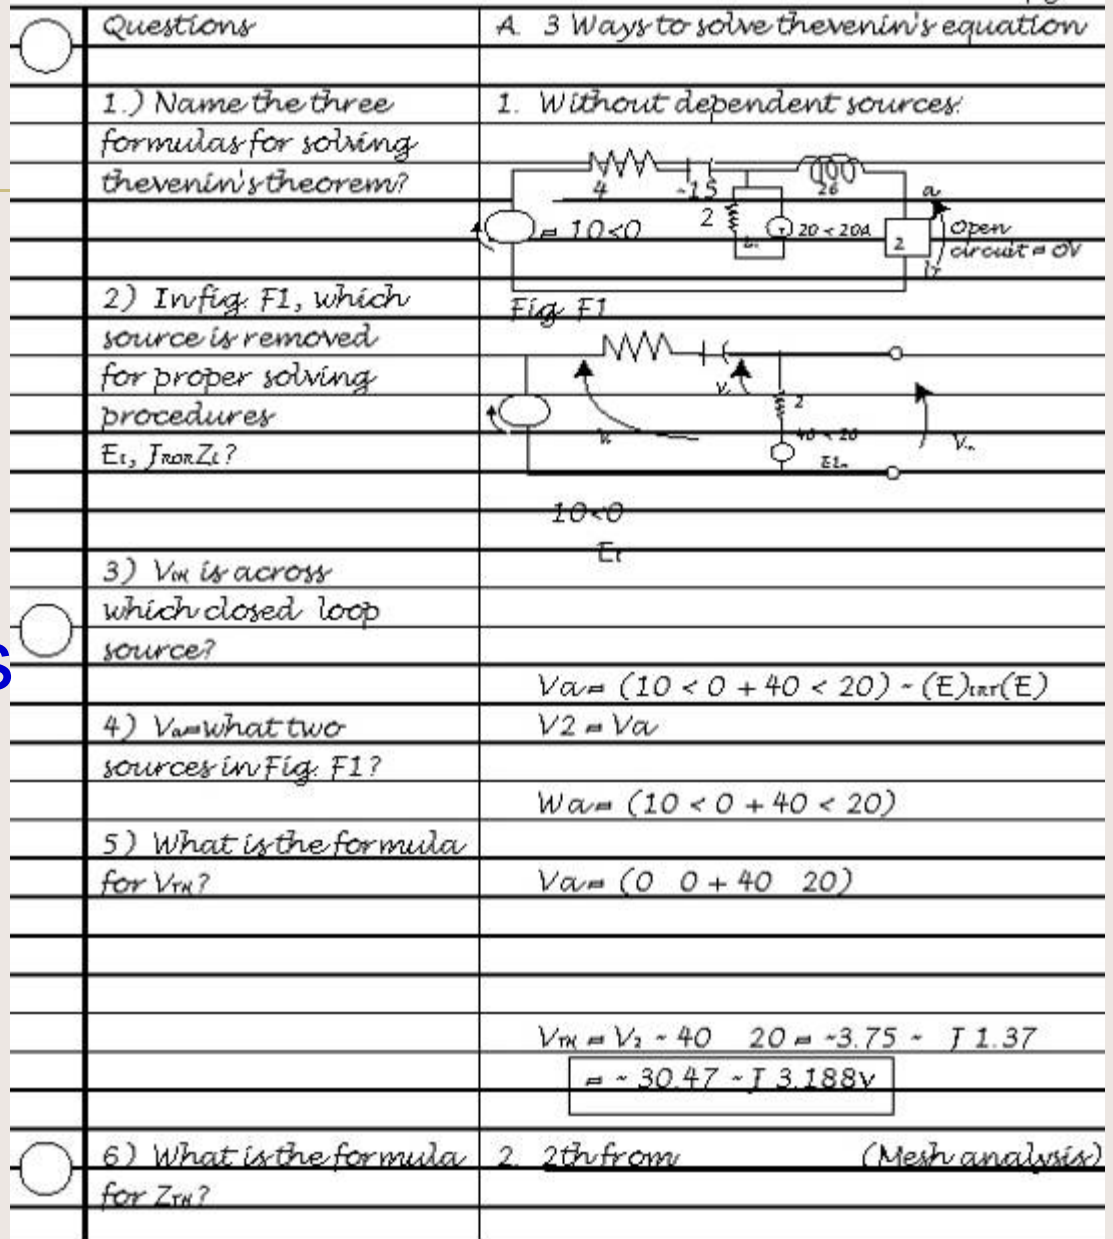 Questions
1.) Name the three
formulas for solving
thevenin's theorem?
2) In fig. F1, which
source is removed
for proper solving
procedures
3) VTH is across
which closed loop
source?
4) Va=what two
sources in Fig. F1?
5) What is the formula
for VTH?
6) What is the formula
for ZTH?
A. 3 Ways to solve thevenin's equation
1. Without dependent sources:
4
-15
26
a
2
= 10<0
20 < 20A
2
Open
circuit = 0V
Fig F1
2
40 < 20
10<0
Va= (10 < 0 + 40 < 20) -
V2 = Va
Wa= (10 < 0 + 40 < 20)
Va= (0 0 + 40 20)
VTH = V2 - 40 20 = -3.75 - J 1.37
= - 30.47 - J 3.188v
2. 2th from (Mesh analysis)
s